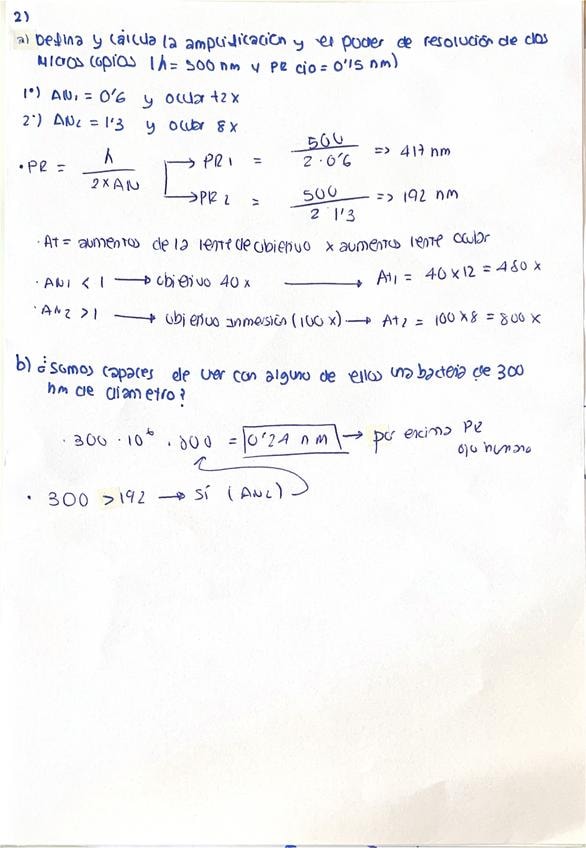 2)
a) Defina y calcula la amplificación y el poder de resolución de dos
microscopios (λ = 500 nm y PR ojo = 0'15 nm)
1º) AN₁ = 0'6 y ocular 12x
2º) AN₂ = 1'3 y ocular 8x
· PR = λ / 2xAN → PR 1 = 500 / 2·0'6 => 417 nm
→ PR 2 = 500 / 2 1'3 => 192 nm
· At = aumentos de la lente de objetivo x aumentos lente ocular
· AN1 < 1 → objetivo 40x → At₁ = 40x12 = 480x
· AN2 > 1 → objetivo inmersión (100x) → At₂ = 100x8 = 800x
b) ¿Somos capaces de ver con alguno de ellos una bacteria de 300
nm de diametro?
· 300 · 10⁶ · 800 = 0'24 nm → por encima PR
ojo humano
· 300 > 192 → Sí (AN2)